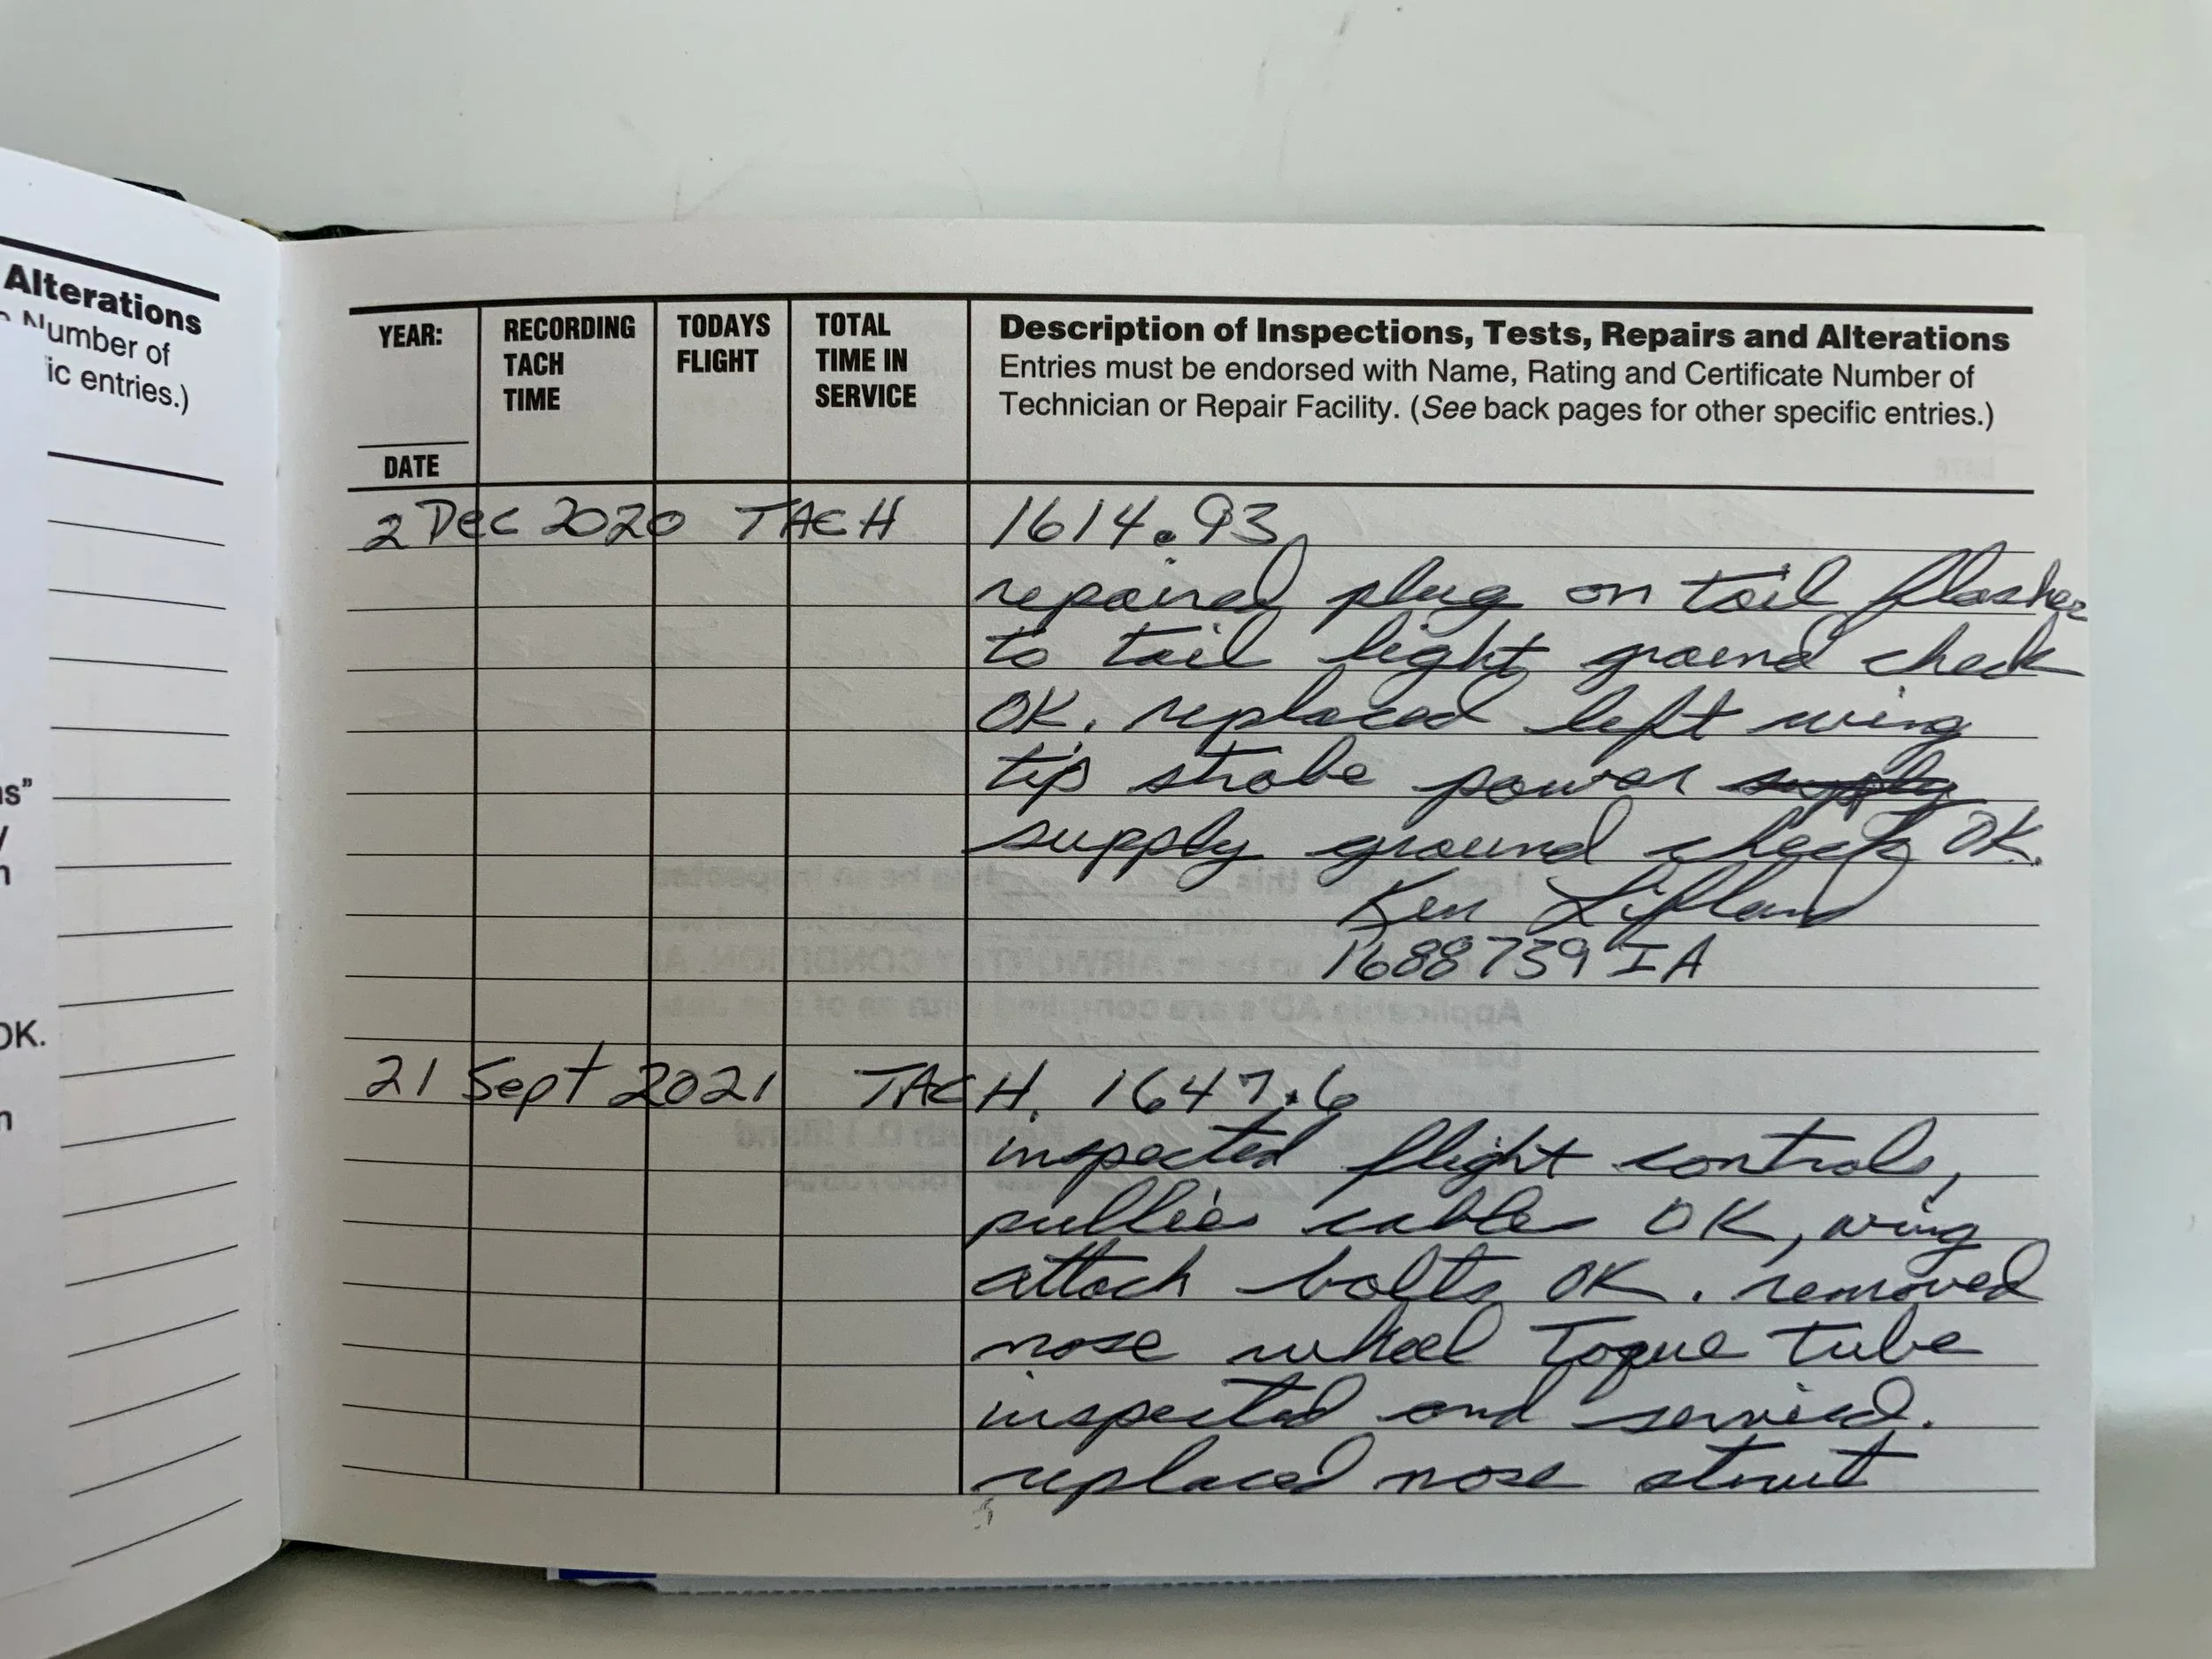 Alterations
Number of
ic entries.)
s"
OK.
YEAR:
DATE
RECORDING
TACH
TIME
TODAYS
FLIGHT
TOTAL
TIME IN
SERVICE
Description of Inspections, Tests, Repairs and Alterations
Entries must be endorsed with Name, Rating and Certificate Number of
Technician or Repair Facility. (See back pages for other specific entries.)
2 Dec 2020 TACH 1614.93
repaired plug on tail flasher
to tail light ground check
OK. replaced left wing
tip strobe power supply
supply ground check OK.
Ken Lifland
1688739 IA
21 Sept 2021 TACH. 1647.6
inspected flight controls,
pullies cables OK, wing
attach bolts OK. removed
nose wheel Toque tube
inspected and serviced.
replaced nose strut